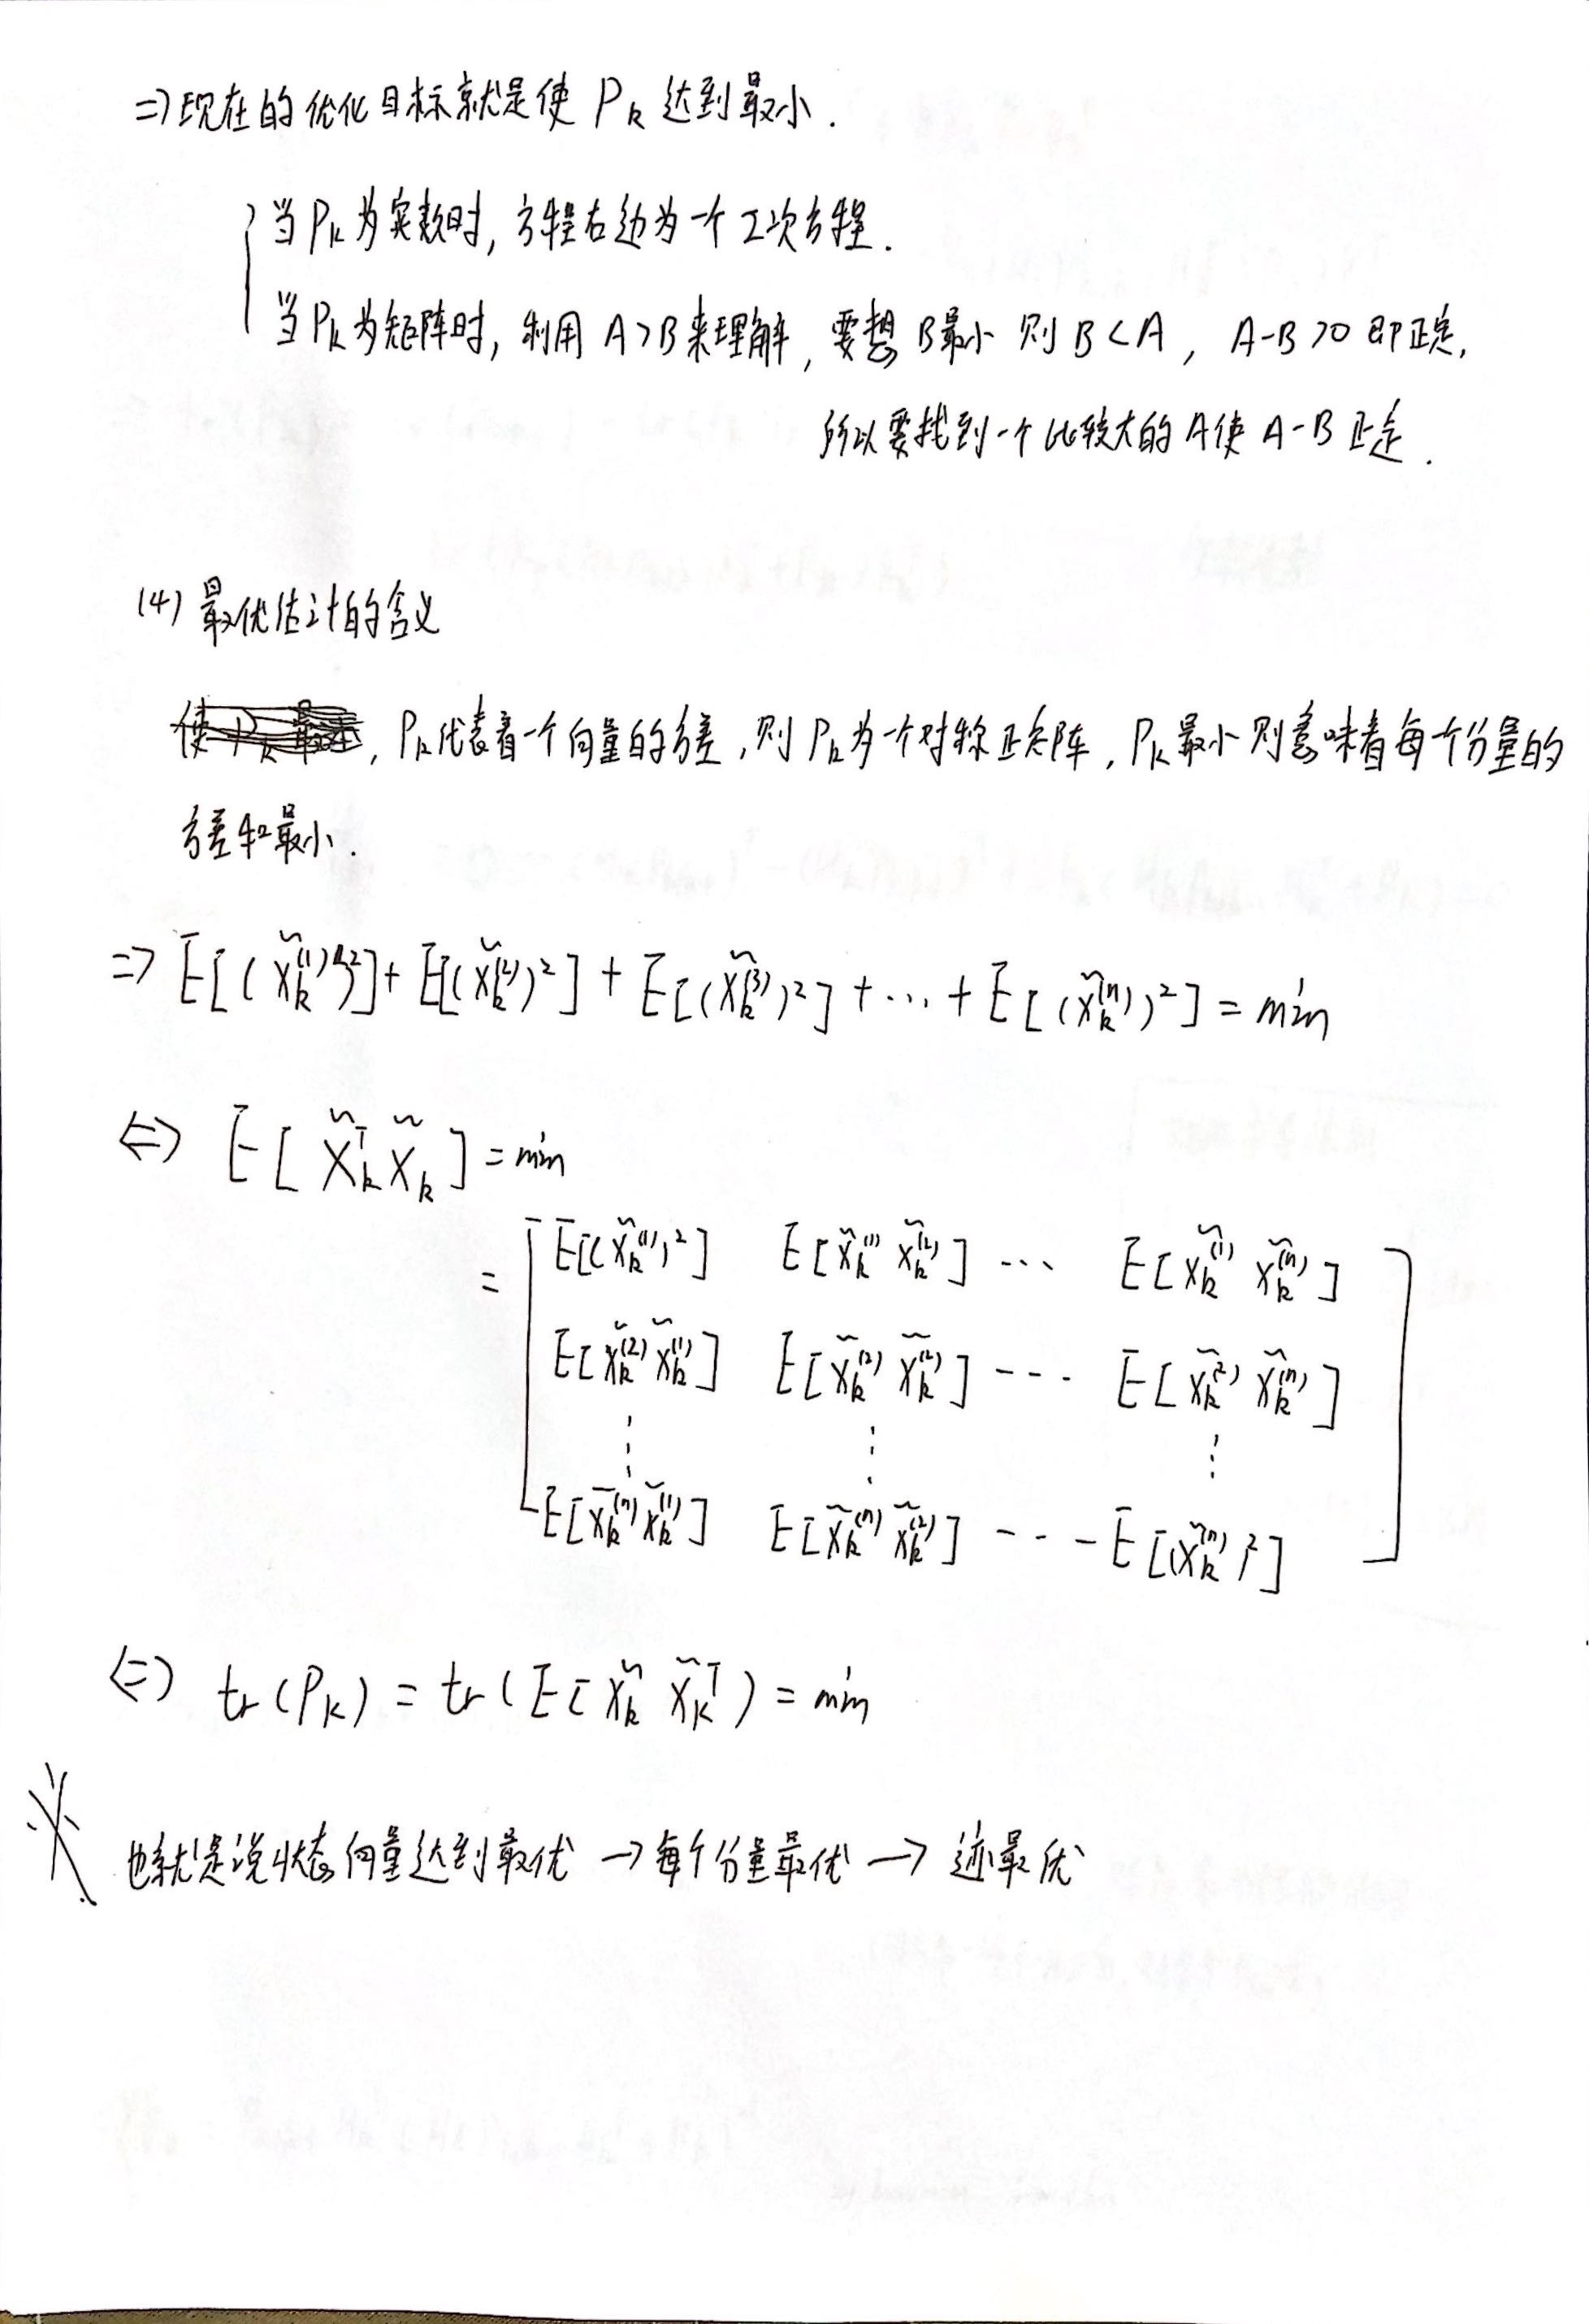 ⇒现在的优化目标就是使 Pₖ 达到最小.
当Pₖ为实数时, 方程右边为一个二次方程.
当Pₖ为矩阵时, 利用 A>B来理解, 要想B最小 则 B<A, A-B>0 即正定,
所以要找到一个比较大的A使 A-B正定.
(4) 最优估计的含义
, Pₖ代表着一个向量的方差, 则Pₖ为一个对称正定阵, Pₖ最小则意味着每个分量的
方差和最小.
⇒ E[(x̃ₖ⁽¹⁾)²] + E[(x̃ₖ⁽²⁾)²] + E[(x̃ₖ⁽³⁾)²] + ... + E[(x̃ₖ⁽ⁿ⁾)²] = min
⇔ E[X̃ₖᵀX̃ₖ] = min
= [ E[(x̃ₖ⁽¹⁾)²] E[x̃ₖ⁽¹⁾ x̃ₖ⁽²⁾] ... E[x̃ₖ⁽¹⁾ x̃ₖ⁽ⁿ⁾]
E[x̃ₖ⁽²⁾x̃ₖ⁽¹⁾] E[x̃ₖ⁽²⁾ x̃ₖ⁽²⁾] ... E[x̃ₖ⁽²⁾ x̃ₖ⁽ⁿ⁾]
⋮ ⋮ ⋮
E[x̃ₖ⁽ⁿ⁾x̃ₖ⁽¹⁾] E[x̃ₖ⁽ⁿ⁾ x̃ₖ⁽²⁾] ... E[(x̃ₖ⁽ⁿ⁾)²] ]
⇔ tr(Pₖ) = tr(E[X̃ₖ X̃ₖᵀ) = min
※ 也就是说状态向量达到最优 → 每个分量最优 → 迹最优